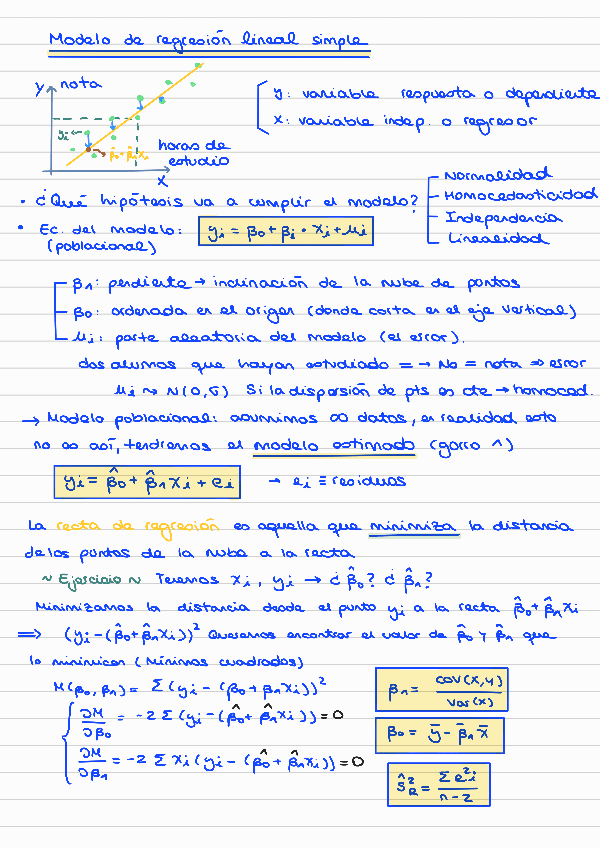 Modelo de regresión lineal simple
y nota
y: variable respuesta o dependiente
x: variable indep. o regresor
yi
β̂0+β̂1xi
horas de
estudio
x
• ¿Qué hipótesis va a cumplir el modelo?
Normalidad
Homocedasticidad
Independencia
Linealidad
• Ec. del modelo: yi = β0 + βi • xi + ui
(poblacional)
β1: pendiente → inclinación de la nube de puntos
β0: ordenada en el origen (donde corta en el eje vertical)
ui: parte aleatoria del modelo (el error).
dos alumnos que hayan estudiado = → No = nota ⇒ error
ui ~ N(0,σ) Si la dispersión de pts es cte → homoced.
→ Modelo poblacional: asumimos ∞ datos, en realidad esto
no es así, tendremos el modelo estimado (gorro ^)
yi = β̂0 + β̂1 xi + ei → ei ≡ residuos
La recta de regresión es aquella que minimiza la distancia
de los puntos de la nube a la recta
~ Ejercicio ~ Tenemos xi, yi → ¿β̂0? ¿β̂1?
Minimizamos la distancia desde el punto yi a la recta β̂0+β̂1xi
⇒ (yi-(β̂0+β̂1xi))² Queremos encontrar el valor de β̂0 y β̂1 que
lo minimicen (Mínimos cuadrados)
M(β0, β1) = Σ(yi - (β0 + β1xi))²
∂M/∂β0 = -2 Σ(yi - (β̂0 + β̂1xi)) = 0
∂M/∂β1 = -2 Σ xi(yi - (β̂0 + β̂1xi)) = 0
β1 = cov(x,y)/var(x)
β0 = ȳ - β̄1 x̄
Ŝ²R = Σe²i/n-2